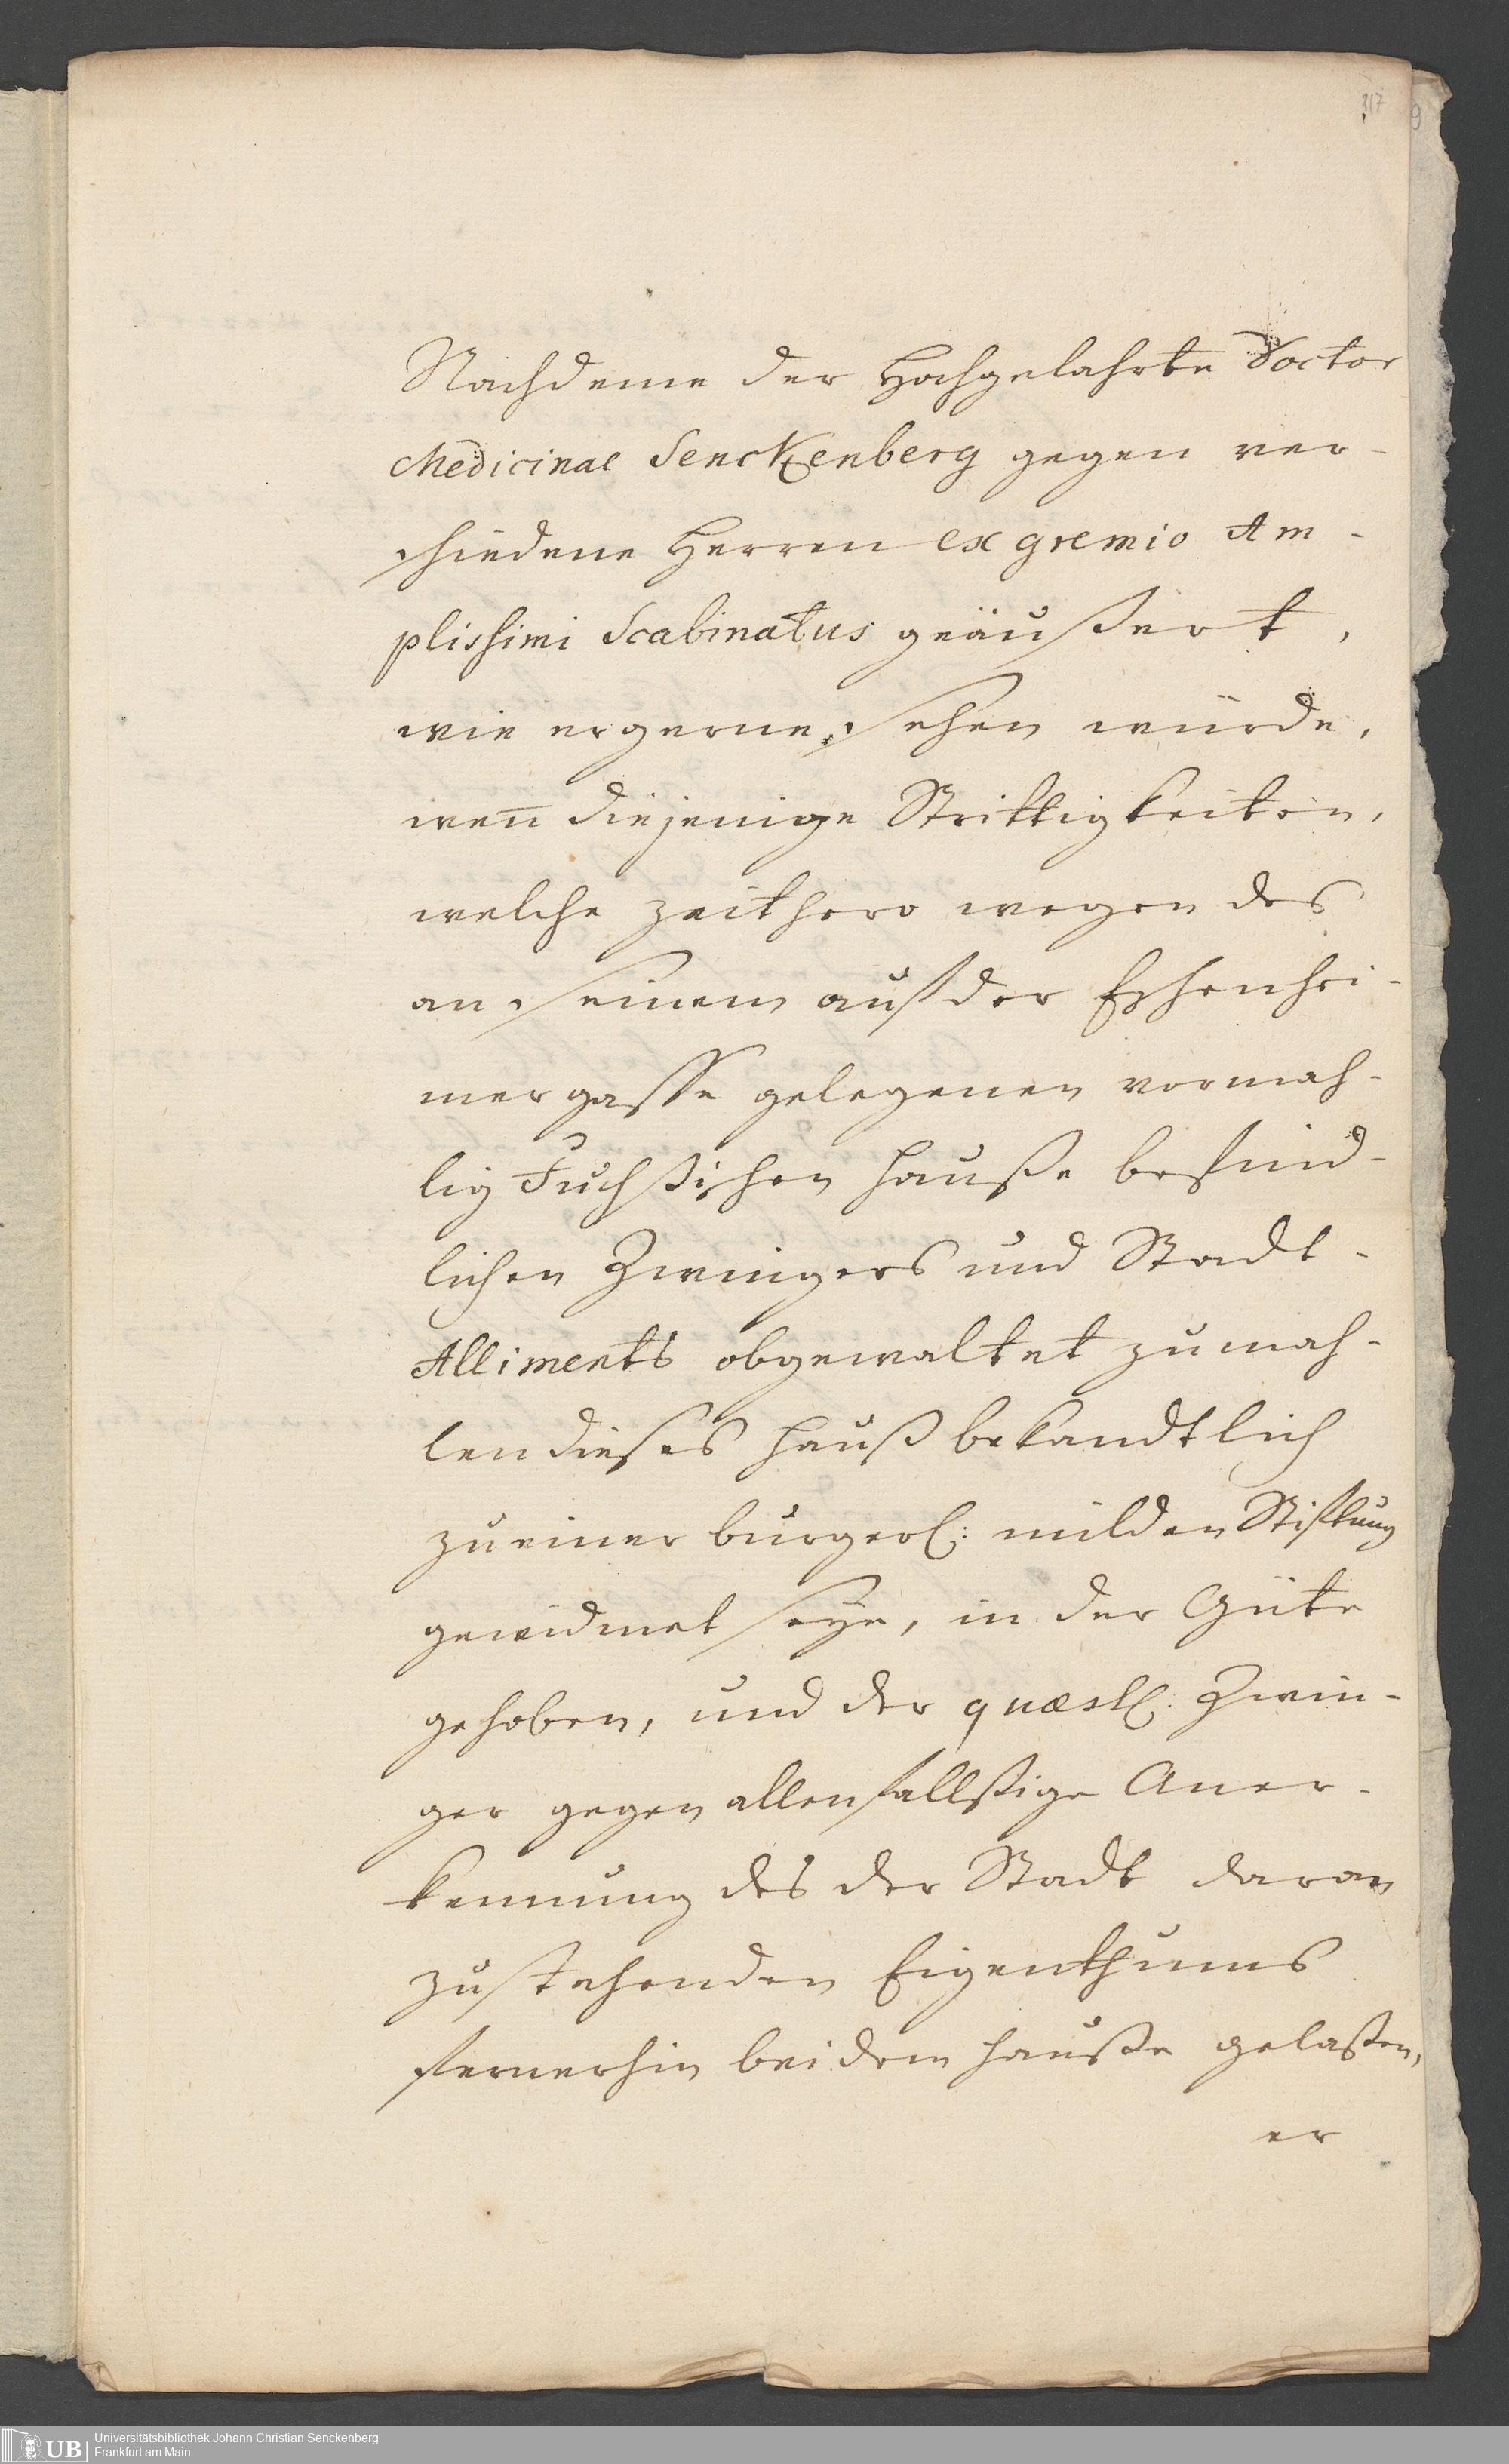 317
9
Nachdeme der Hochgelahrte Doctor
Medicinae Senckenberg gegen ver-
schiedene Herren ex gremio Am-
plissimi Scabinatus geäußert,
wie er gerne sehen würde,
wen̄ diejenige Strittigkeiten,
welche zeithero wegen des
an seinem auf der Eschenhei-
mer gasse gelegenen vormah-
lig Fuchsischen Hauße befind-
lichen Zwingers und Stadt-
Alliments obgewaltet zumah-
len dieses Hauß bekandtlich
zu einer burgerl: milden Stiftung
gewidmet seye, in der Güte
gehoben, und der quæstl: Zwin-
ger gegen allenfallsige Aner-
kennung des der Stadt daran
zustehenden Eigenthums
fernerhin bei dem Hauße gelaßen,
er
UB
Universitätsbibliothek Johann Christian Senckenberg
Frankfurt am Main